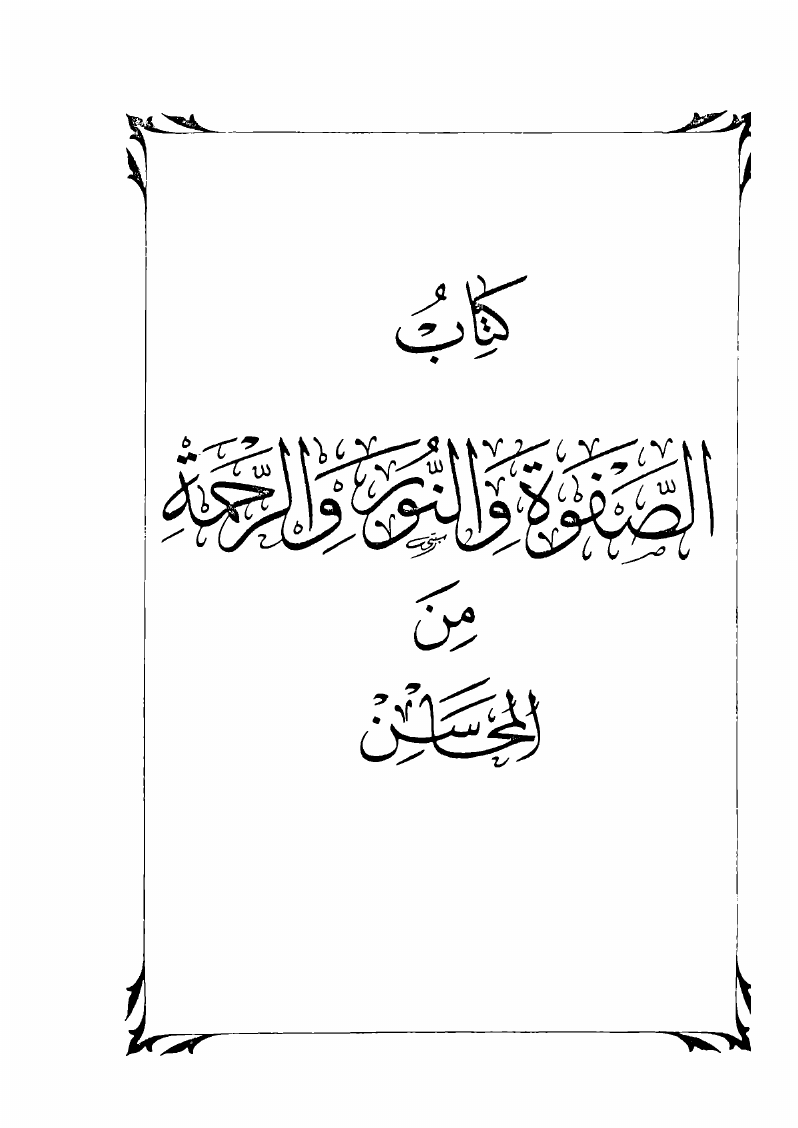 كِتَابُ
الصَّفْوَةِ وَالنُّورِ وَالرَّحْمَةِ
مِنَ
المَحَاسِنِ